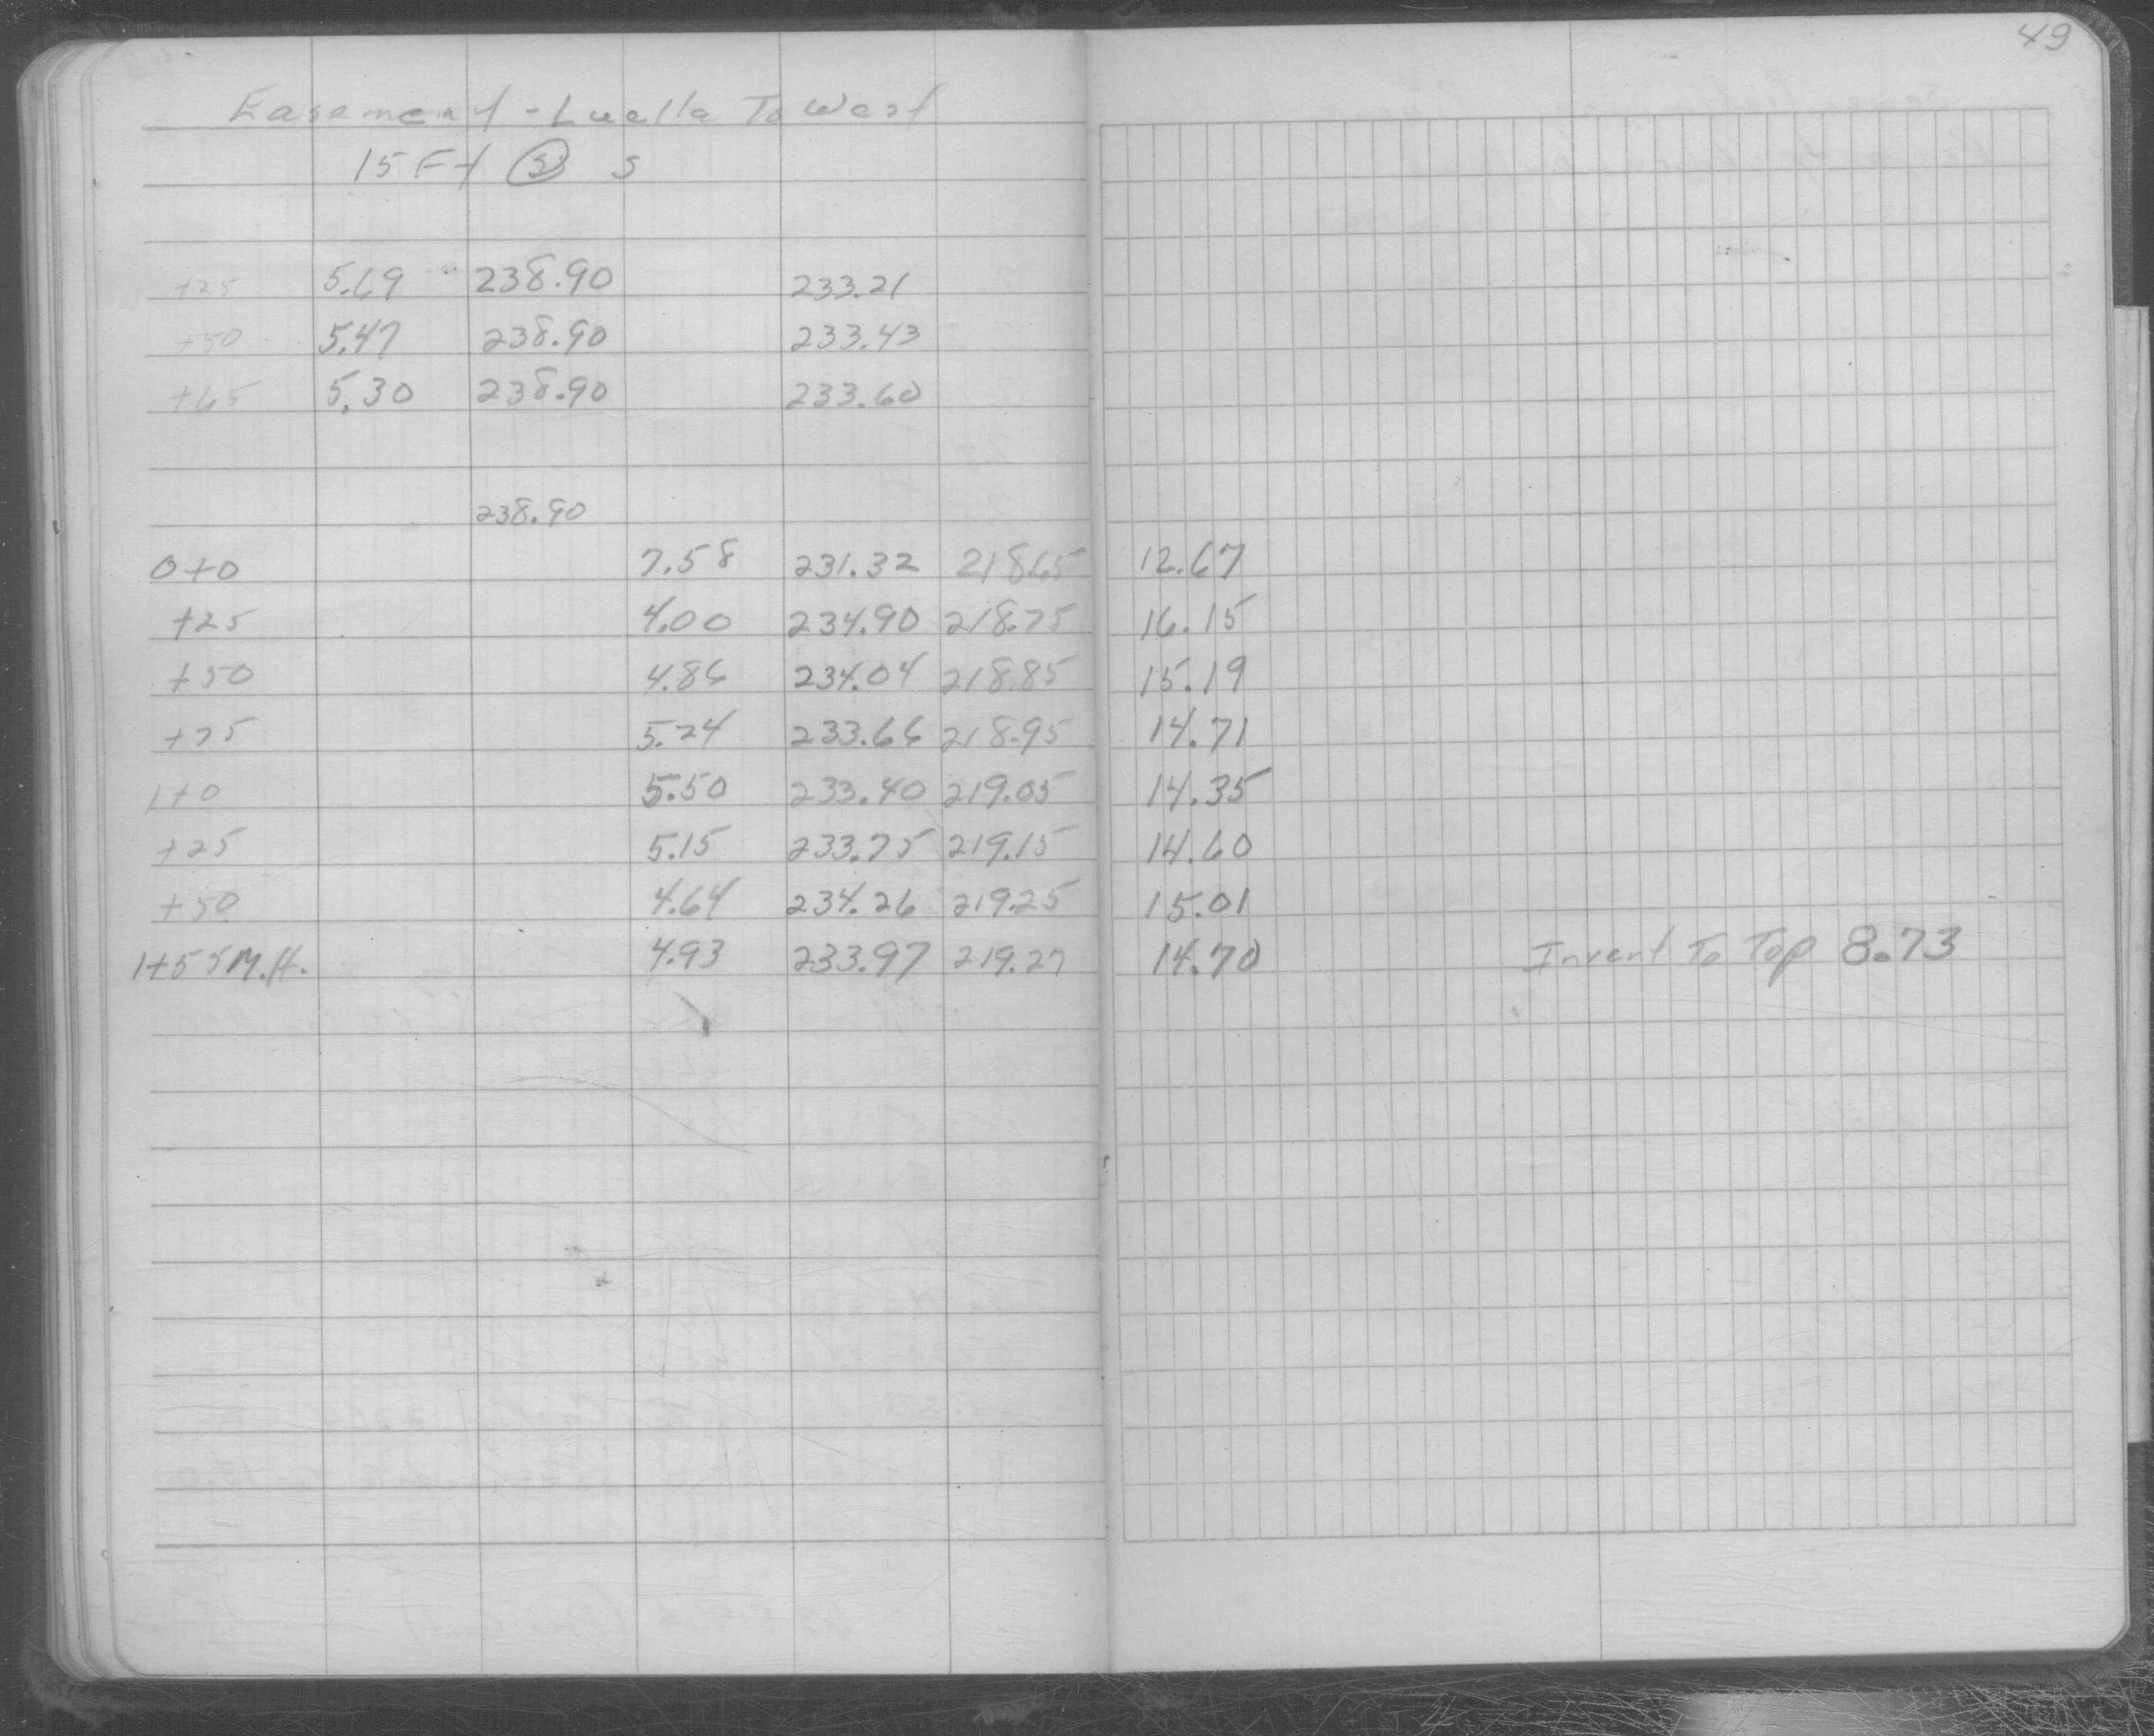 49
Easement - Luella To West
15 Ft Ⓢ S
+25 5.69 238.90 233.21
+50 5.47 238.90 233.43
+65 5.30 238.90 233.60
238.90
0+0 7.58 231.32 218.65 12.67
+25 4.00 234.90 218.75 16.15
+50 4.86 234.04 218.85 15.19
+75 5.24 233.66 218.95 14.71
1+0 5.50 233.40 219.05 14.35
+25 5.15 233.75 219.15 14.60
+50 4.64 234.26 219.25 15.01
1+55 M.H. 4.93 233.97 219.27 14.70 Invert To Top 8.73